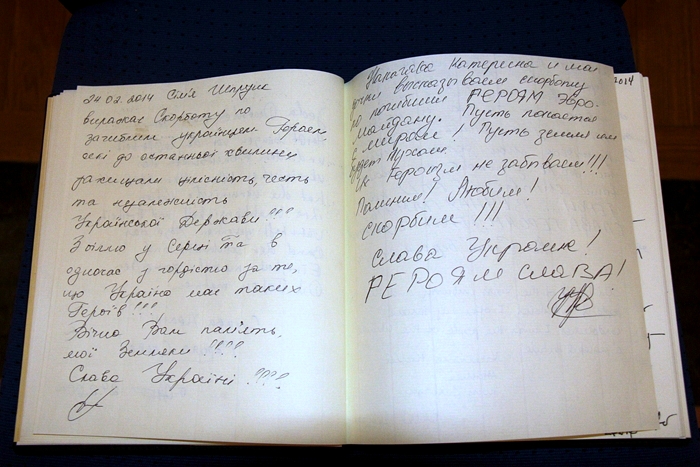 24.02.2014 Сім'я Шпрунг
виражає Скорботу по
загиблим українцем Героям,
які до останньої хвилини
захищали цілісність, честь
та незалежність
Української Держави!!!
З біллю у Серці та в
одночас у гордістю за те,
що Україна має таких
Героїв!!!
Вічно Вам пам'ять,
мої Земляки!!!!
Слава Україні!!!!
Катерина и мои
дочки высказываем скорботу
по погибшим ГЕРОЯМ Евро-
Майдану. Пусть покоятся
с миром! Пусть земля им
будет Пухом.
Их Героизм не забываем!!!
Помним! Любим!
Скорбим!!!
Слава Украине!
ГЕРОЯМ СЛАВА!
2014